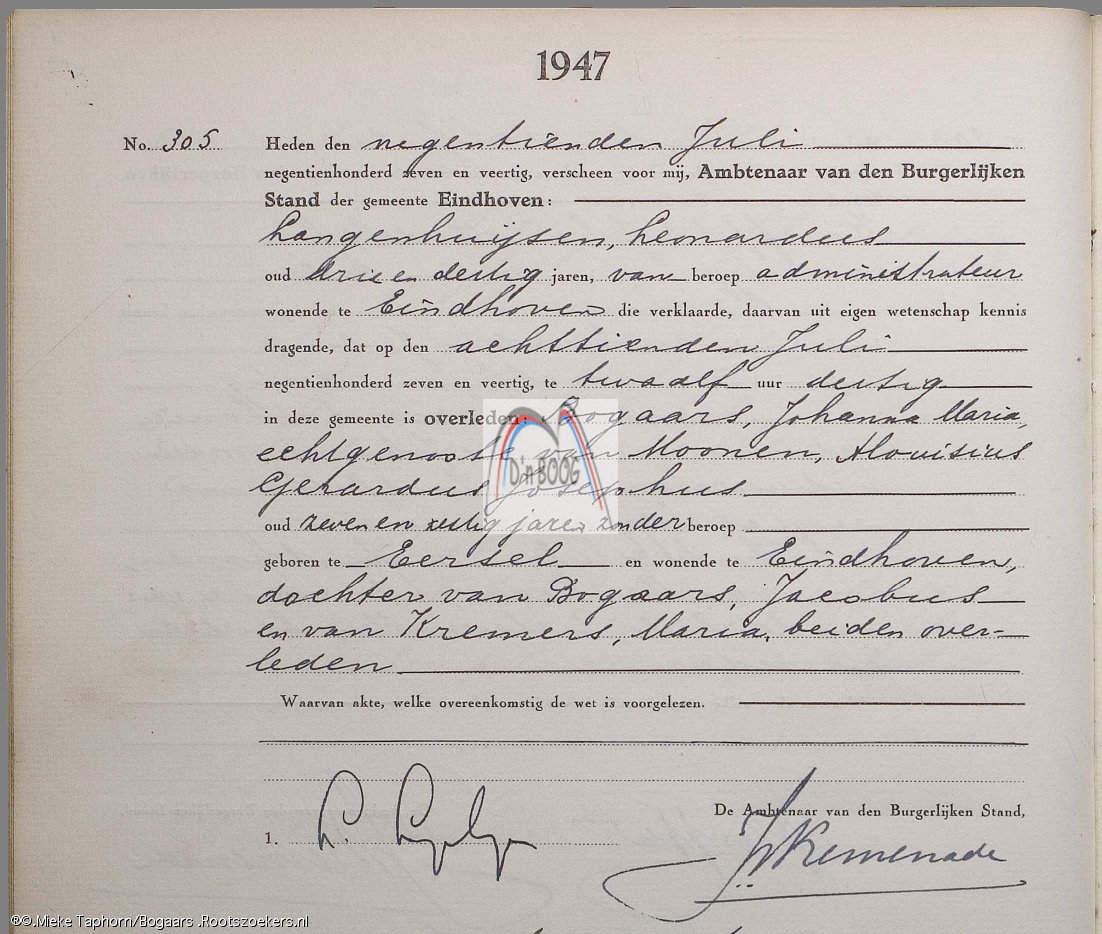 1947
No. 305 Heden den negentienden Juli
negentienhonderd zeven en veertig, verscheen voor mij, Ambtenaar van den Burgerlijken
Stand der gemeente Eindhoven:
Langenhuijsen, Leonardus
oud drie en dertig jaren, van beroep administrateur
wonende te Eindhoven die verklaarde, daarvan uit eigen wetenschap kennis
dragende, dat op den achttienden Juli
negentienhonderd zeven en veertig, te twaalf uur dertig
in deze gemeente is overleden: Bogaars, Johanna Maria,
echtgenoote van Moonen, Alouisius
Gerardus Josephus
D'n BOOG
oud zeven en zestig jaren zonder beroep
geboren te Eersel en wonende te Eindhoven,
dochter van Bogaars, Jacobus
en van Kremers, Maria, beiden over-
leden
Waarvan akte, welke overeenkomstig de wet is voorgelezen.
De Ambtenaar van den Burgerlijken Stand,
1. L.
Kemenade
®©.Mieke Taphorn/Bogaars .Rootszoekers.nl